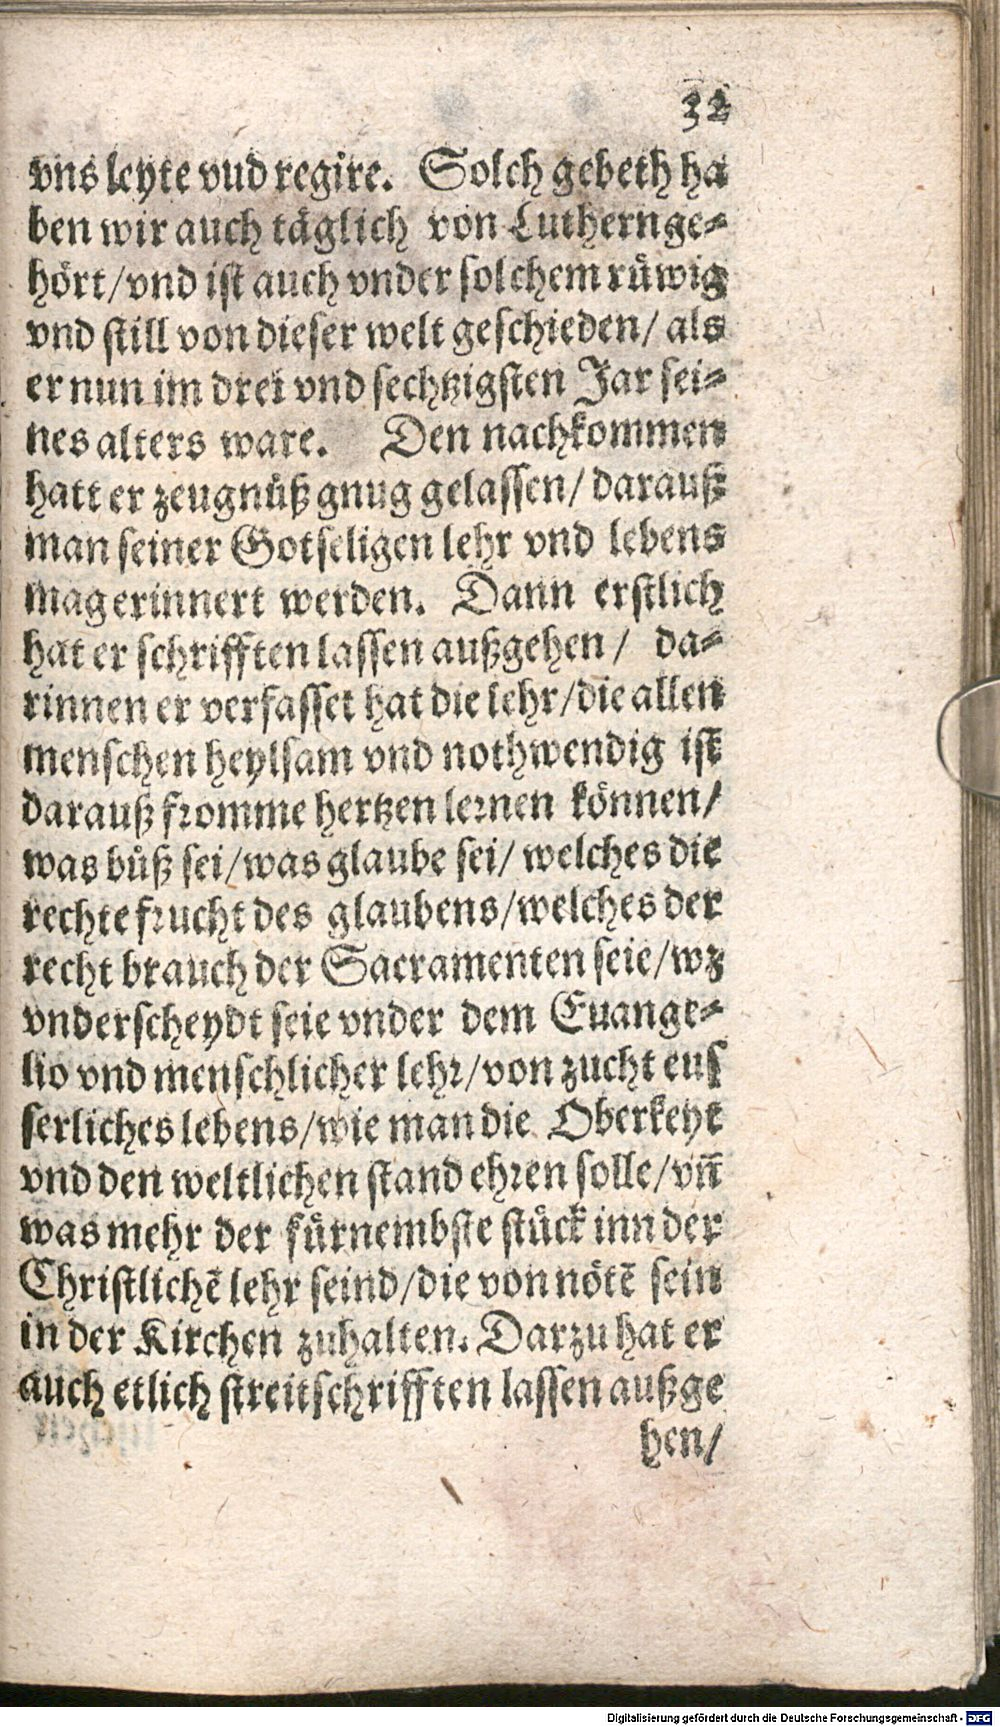 32
vns leyte vud regire. Solch gebeth ha
ben wir auch täglich von Luthern ge⸗
hört/vnd ist auch vnder solchem rüwig
vnd still von dieser welt geschieden/ als
er nun im drei vnd sechtzigsten Jar sei⸗
nes alters ware. Den nachkommen
hatt er zeugnüß gnug gelassen/ darauß
man seiner Gotseligen lehr vnd lebens
mag erinnert werden. Dann erstlich
hat er schrifften lassen außgehen/ da⸗
rinnen er verfasset hat die lehr/die allen
menschen heylsam vnd nothwendig ist
darauß fromme hertzen lernen können/
was bůß sei/was glaube sei/ welches die
rechte frucht des glaubens/welches der
recht brauch der Sacramenten seie/wz
vnderscheydt seie vnder dem Euange⸗
lio vnd menschlicher lehr/von zucht eus
serliches lebens/wie man die Oberkeyt
vnd den weltlichen stand ehren solle/vn̄
was mehr der fürnembste stück inn der
Christlichē lehr seind/die von nötē sein
in der Kirchen zuhalten. Darzu hat er
auch etlich streitschrifften lassen außge
hen/
Digitalisierung gefördert durch die Deutsche Forschungsgemeinschaft - DFG